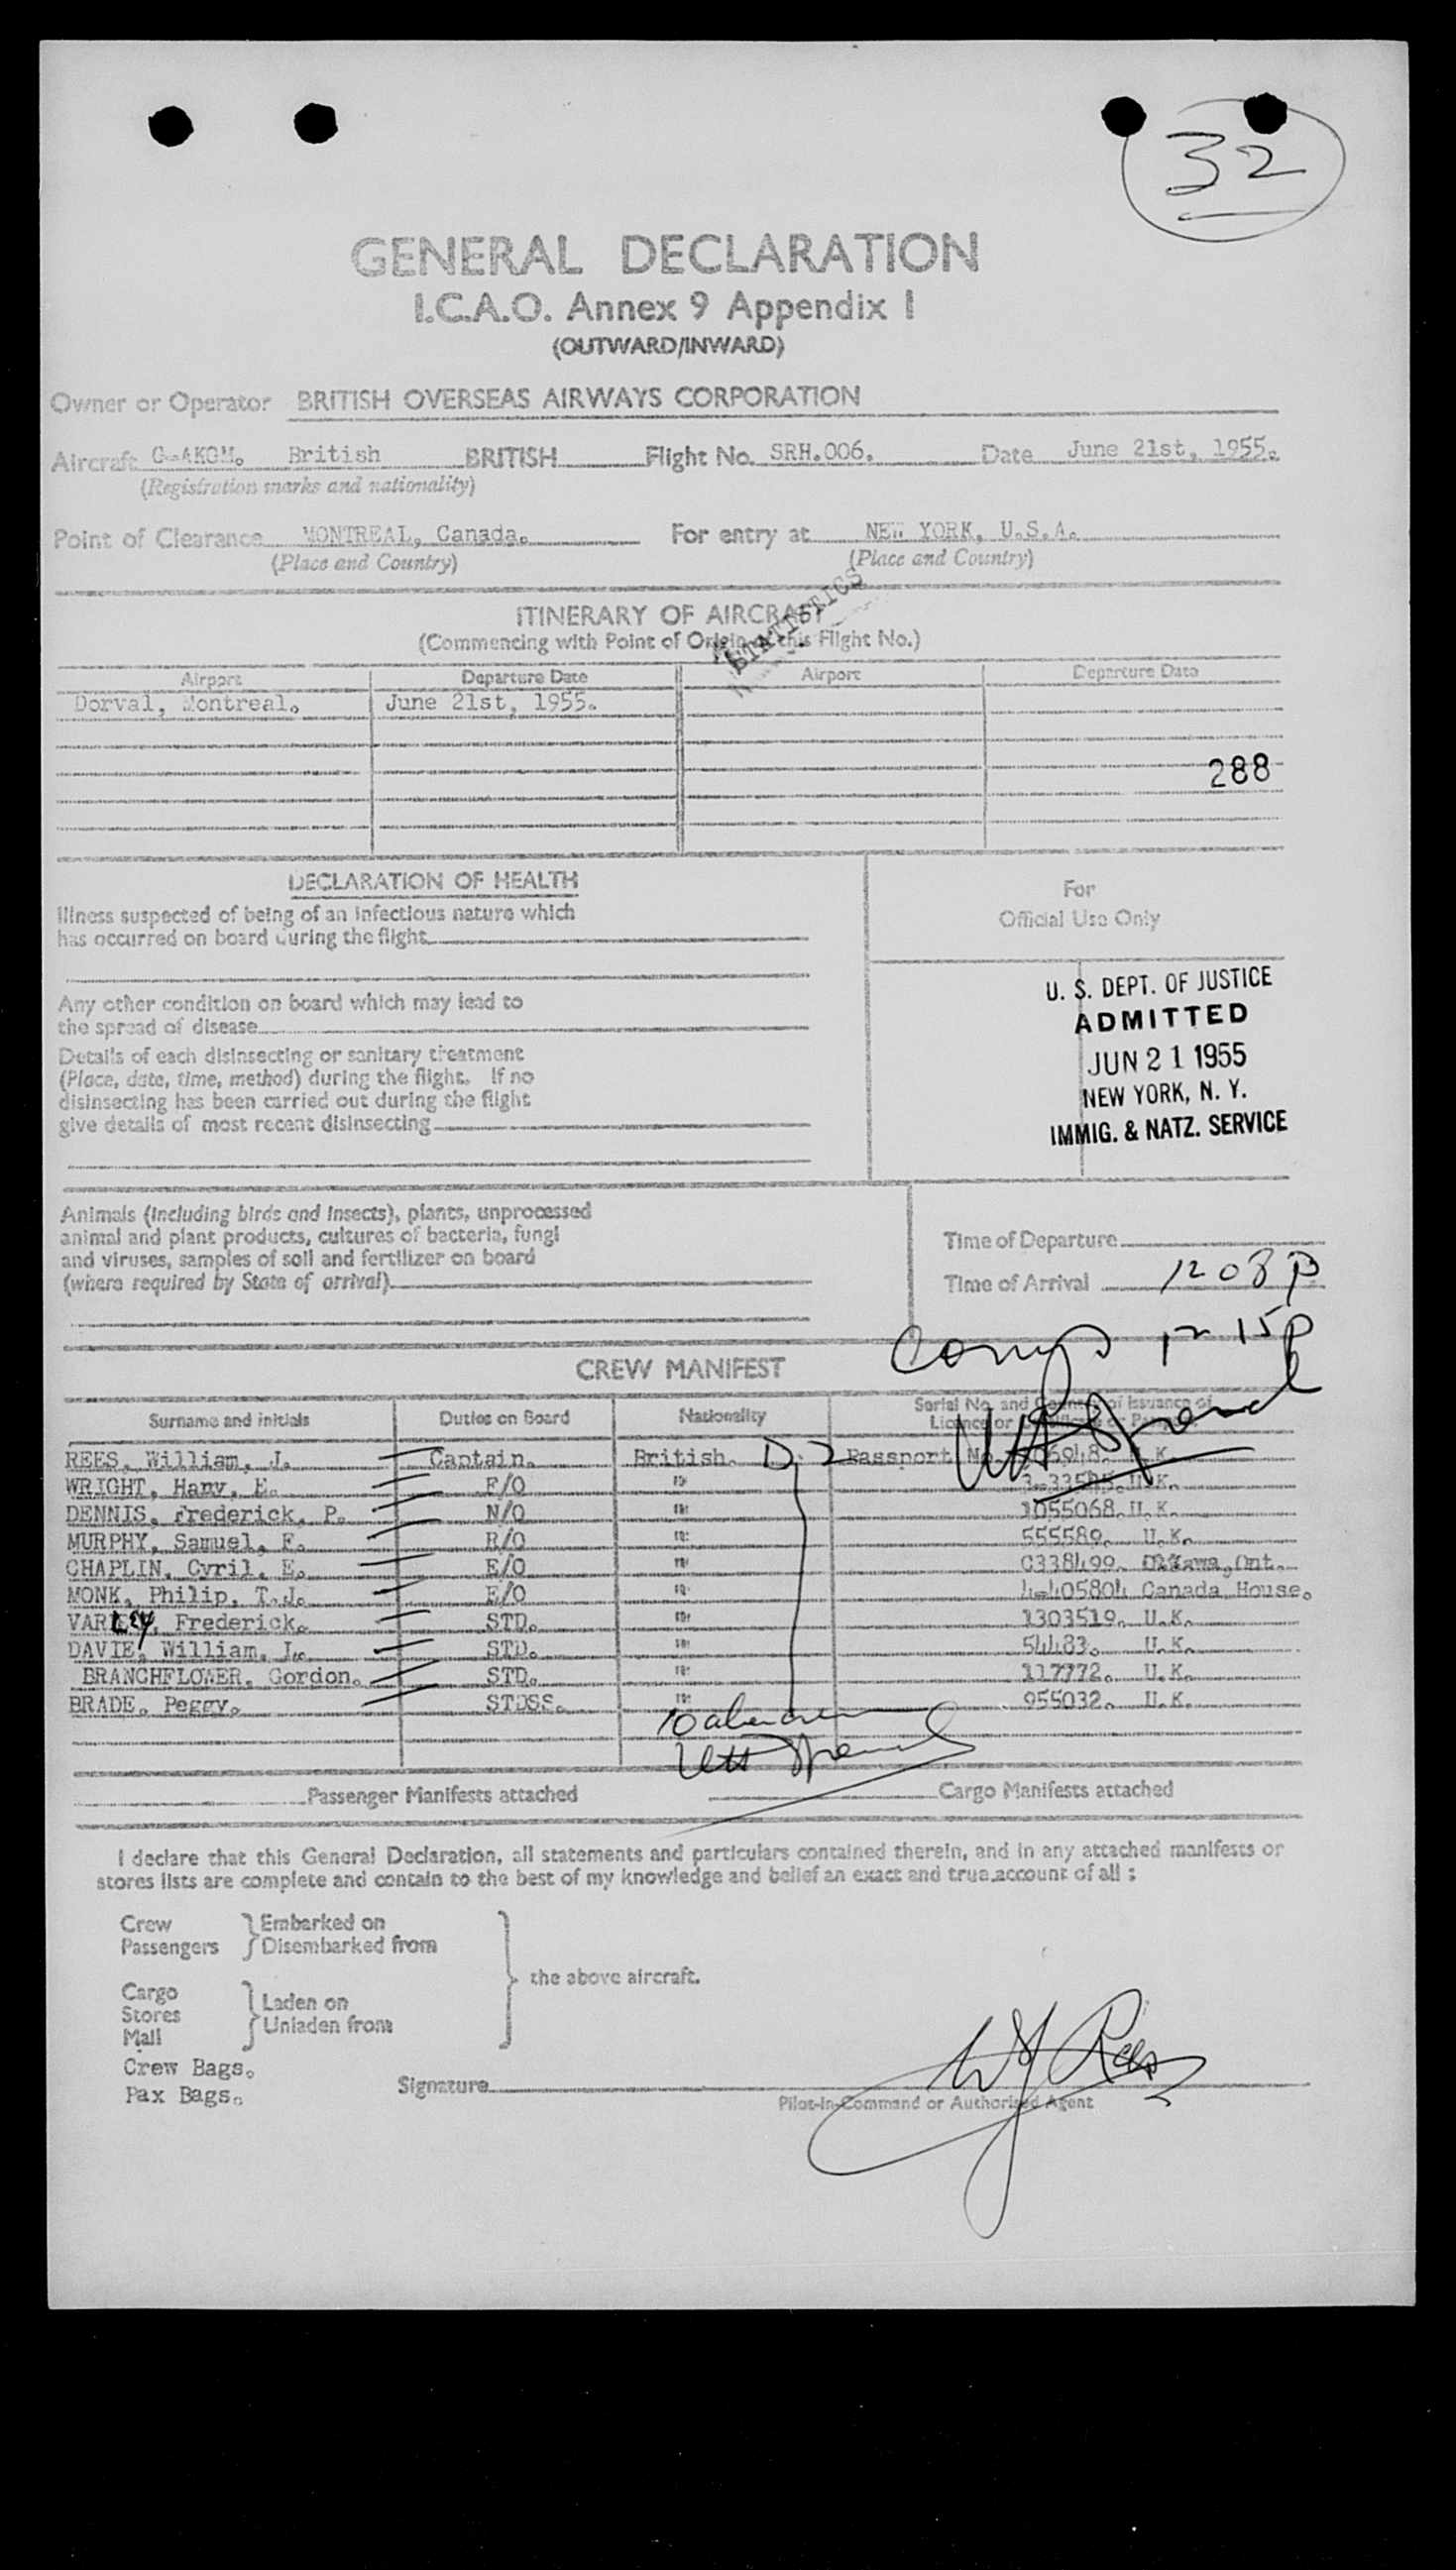 32
GENERAL DECLARATION
I.C.A.O. Annex 9 Appendix I
(OUTWARD/INWARD)
Owner or Operator BRITISH OVERSEAS AIRWAYS CORPORATION
Aircraft G-AKGM. British BRITISH Flight No. SRH.006. Date June 21st, 1955.
(Registration marks and nationality)
Point of Clearance MONTREAL, Canada. For entry at NEW YORK, U.S.A.
(Place and Country) (Place and Country)
STATISTICS
ITINERARY OF AIRCRAFT
(Commencing with Point of Origin of this Flight No.)
Airport Departure Date Airport Departure Date
Dorval, Montreal. June 21st, 1955.
288
DECLARATION OF HEALTH
Illness suspected of being of an infectious nature which
has occurred on board during the flight
Any other condition on board which may lead to
the spread of disease
Details of each disinsecting or sanitary treatment
(Place, date, time, method) during the flight. If no
disinsecting has been carried out during the flight
give details of most recent disinsecting
For
Official Use Only
U. S. DEPT. OF JUSTICE
ADMITTED
JUN 21 1955
NEW YORK, N. Y.
IMMIG. & NATZ. SERVICE
Animals (including birds and insects), plants, unprocessed
animal and plant products, cultures of bacteria, fungi
and viruses, samples of soil and fertilizer on board
(where required by State of arrival)
Time of Departure
Time of Arrival 12 08 P
12 15 P
CREW MANIFEST
Surname and initials Duties on Board Nationality Serial No. and Country of Issuance of
Licence or Certificate or Passport
REES, William, J. Captain. British. Passport No. U.K.
WRIGHT, Hany, E. F/O " U.K.
DENNIS, Frederick, P. N/O " 1055068. U.K.
MURPHY, Samuel, E. R/O " 555589. U.K.
CHAPLIN, Cyril, E. E/O " C338499. Ottawa, Ont.
MONK, Philip, T.J. E/O " 4-405804 Canada House.
VARLEY, Frederick. STD. " 1303519. U.K.
DAVIE, William, J. STD. " 54483. U.K.
BRANCHFLOWER, Gordon. STD. " 117772. U.K.
BRADE, Peggy. STDSS. " 955032. U.K.
10
Passenger Manifests attached Cargo Manifests attached
I declare that this General Declaration, all statements and particulars contained therein, and in any attached manifests or
stores lists are complete and contain to the best of my knowledge and belief an exact and true account of all :
Crew Embarked on
Passengers Disembarked from
the above aircraft.
Cargo Laden on
Stores Unladen from
Mail
Crew Bags.
Pax Bags.
Signature WJ Rees
Pilot-in-Command or Authorised Agent